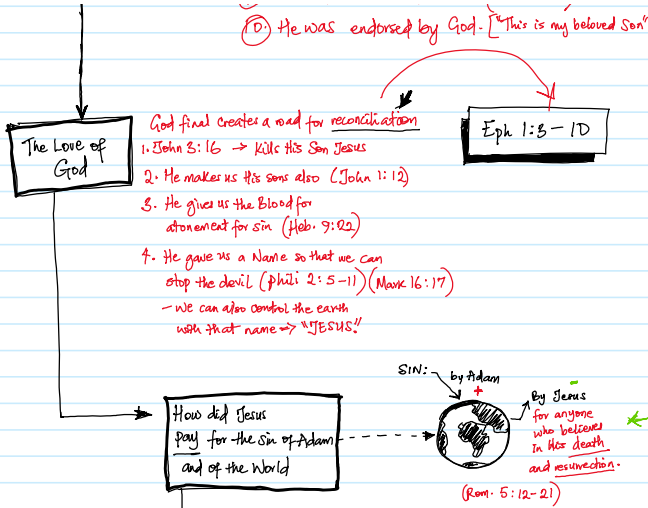 10. He was endorsed by God. ["This is my beloved Son"
God final creates a road for reconciliation
The Love of
God
Eph 1:3-10
1. John 3:16 → Kills His Son Jesus
2. He makes us His sons also (John 1:12)
3. He gives us the Blood for
atonement for sin (Heb. 9:22)
4. He gave us a Name so that we can
stop the devil (Phili 2:5-11) (Mark 16:17)
- We can also control the earth
with that name => "JESUS."
SIN:-
by Adam
+
How did Jesus
pay for the sin of Adam
and of the World
-
By Jesus
for anyone
who believes
In His death
and resurrection.
(Rom. 5:12-21)